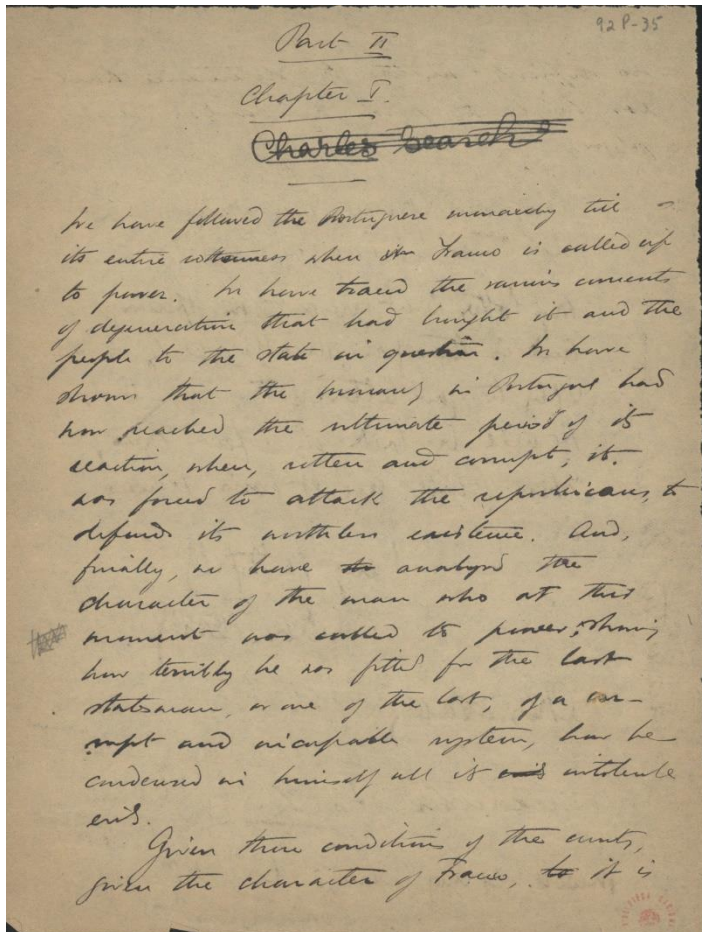 92P-35
Part II
Chapter I.
Charles Search
We have followed the Portuguese monarchy till
its entire rottenness when Franco is called up
to power. We have traced the various currents
of degeneration that had brought it and the
people to the state in question. We have
shown that the monarchy in Portugal had
now reached the ultimate period of its
reaction, when, rotten and corrupt, it
was forced to attack the republicans, to
defend its worthless existence. And,
finally, we have analysed the
character of the man who at this
moment was called to power, showing
how terribly he was fitted for the last
statesman, or one of the last, of a cor-
rupt and incapable system, how he
condensed in himself all its
evils.
Given these conditions of the events,
given the character of Franco, it is